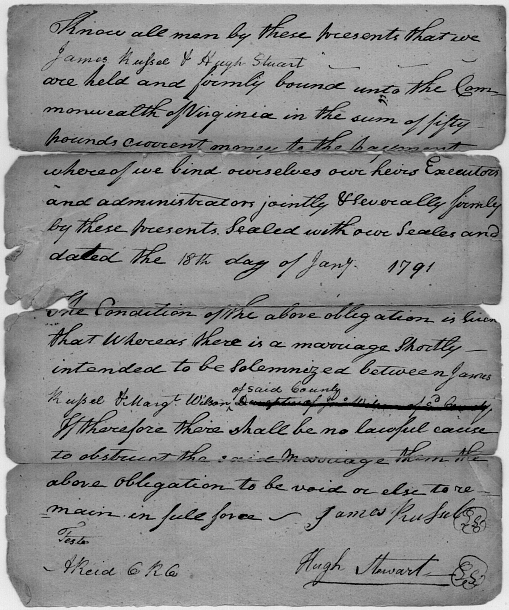 Know all men by these presents that we
James Russel & Hugh Stuart
are held and firmly bound unto the Com-
monwealth of Virginia in the sum of fifty
pounds current money to the payment
whereof we bind ourselves our heirs Executors
and administrators jointly & severally firmly
by these presents. Sealed with our Seales and
dated the 18th day of Jany. 1791
The Condition of the above obligation is Such
that Whereas there is a marriage Shortly
intended to be Solemnized between James
of said County
Russel & Margt. Wilson
If therefore there shall be no lawful cause
to obstruct the said Marriage then the
above Obligation to be void or else to re-
main in full force James Russel
Teste
Hugh Stewart
AReid C R C